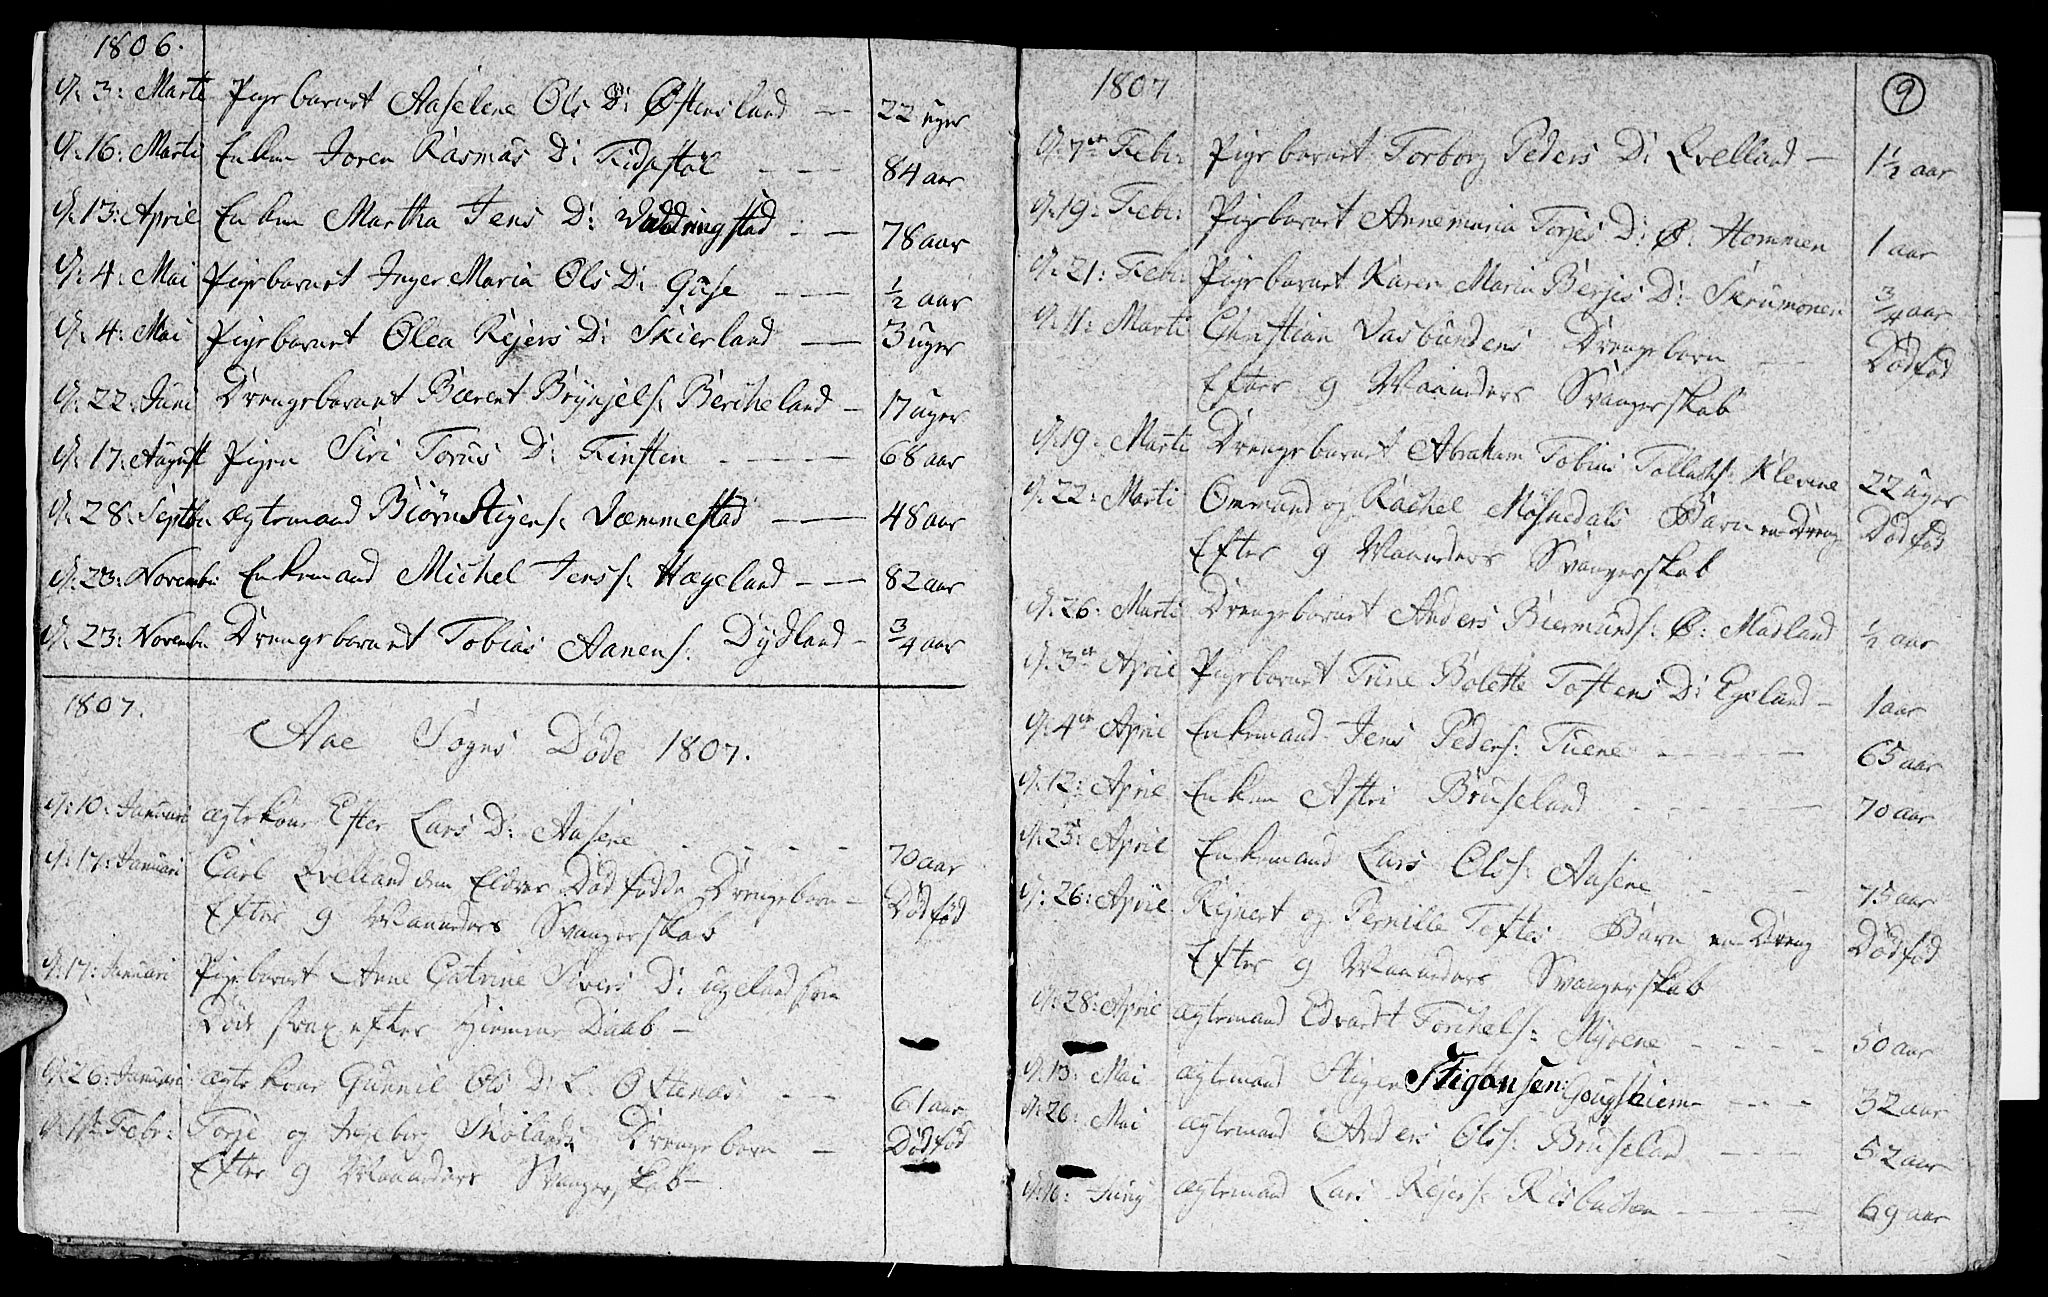 1806.
d: 3: Marti Pigebarnet Aaselene Ols D: Østensland 22 uger
d: 16: Marti Enken Joren Rasmus D: Fidsestøl 84 aar
d: 13: April Enken Martha Jens D: 78 aar
d: 4: Mai Pigebarnet Inger Maria Ols D: Guse ½ aar
d: 4: Mai Pigebarnet Olea Rejers D: Skierland 3 uger
d: 22: Juni Drengebarnet Bærent Brynjels: Bercheland 17 uger
d: 17: August Pigen Siri Torus D: Finsten 68 aar
d: 28: Septbr Ægtemand Biørn Stigens: Væmmestad 48 aar
d: 23: Novembr Enkemand Michel Jens: Hægeland 82 aar
d: 23: Novembr Drengebarnet Tobias Aanens: Dydland ¾ aar
1807.
Aae Sogns Døde 1807.
d: 10: Januari Ægtekone Ester Lars D: Aasene 70 aar
d: 17: Januari Carl Qvelland den Eldres Dødfødde Drengebarn Dødfød
Efter 9 Maaneders Svangerskab
d: 17: Januari Pigebarnet Anne Catrine Sivers D: Ugeland som
Døde strax efter Hiemme Daab
d: 26: Januari Ægtekone Gunnil Ols D: L: Ottenæs 61 aar
d: 11te Febr: Torje og Ingeborg Skolands Drengebarn Dødfød
Efter 9 Maaneders Svangerskab
1807
9
d: 7de Febr: Pigebarnet Torborg Peders D: Qvelland 1½ aar
d: 19: Febr: Pigebarnet Annemaria Torjes D: Ø: Hommen 1 aar
d: 21: Febr: Pigebarnet Karen Maria Berjes D: Skrumoner ¾ aar
d: 11: Marti Christian Vasbundens Drengebarn Dødfød
Efter 9 Maaneders Svangerskab
d: 19: Marti Drengebarnet Abraham Tobias Tollachs: Klevene 22 uger
d: 22: Marti Ommund og Rachel Møsnedals Barn en Dreng Dødfød
Efter 9 Maaneders Svangerskab
d: 26: Marti Drengebarnet Anders Biermunds: Ø: Madland ½ aar
d: 3de April Pigebarnet Trine Bolette Tostens D: Egeland 1 aar
d: 4de April Enkemand Jens Peders: Tuene 65 aar
d: 12: April Enken Astri Bruseland 70 aar
d: 25: April Enkemand Lars Ols: Aasene 75 aar
d: 26: April Rejnert og Pernille Toftes Barn en Dreng Dødfød
Efter 9 Maaneders Svangerskab
d: 28: April Ægtemand Edvardt Torchels: Myrene 50 aar
d: 13: Mai Ægtemand Stigen Stigansen 32 aar
d: 26: Mai Ægtemand Anders Ols: Bruseland 52 aar
d: 10: Junÿ Ægtemand Lars Rejers: Risbachen 69 aar